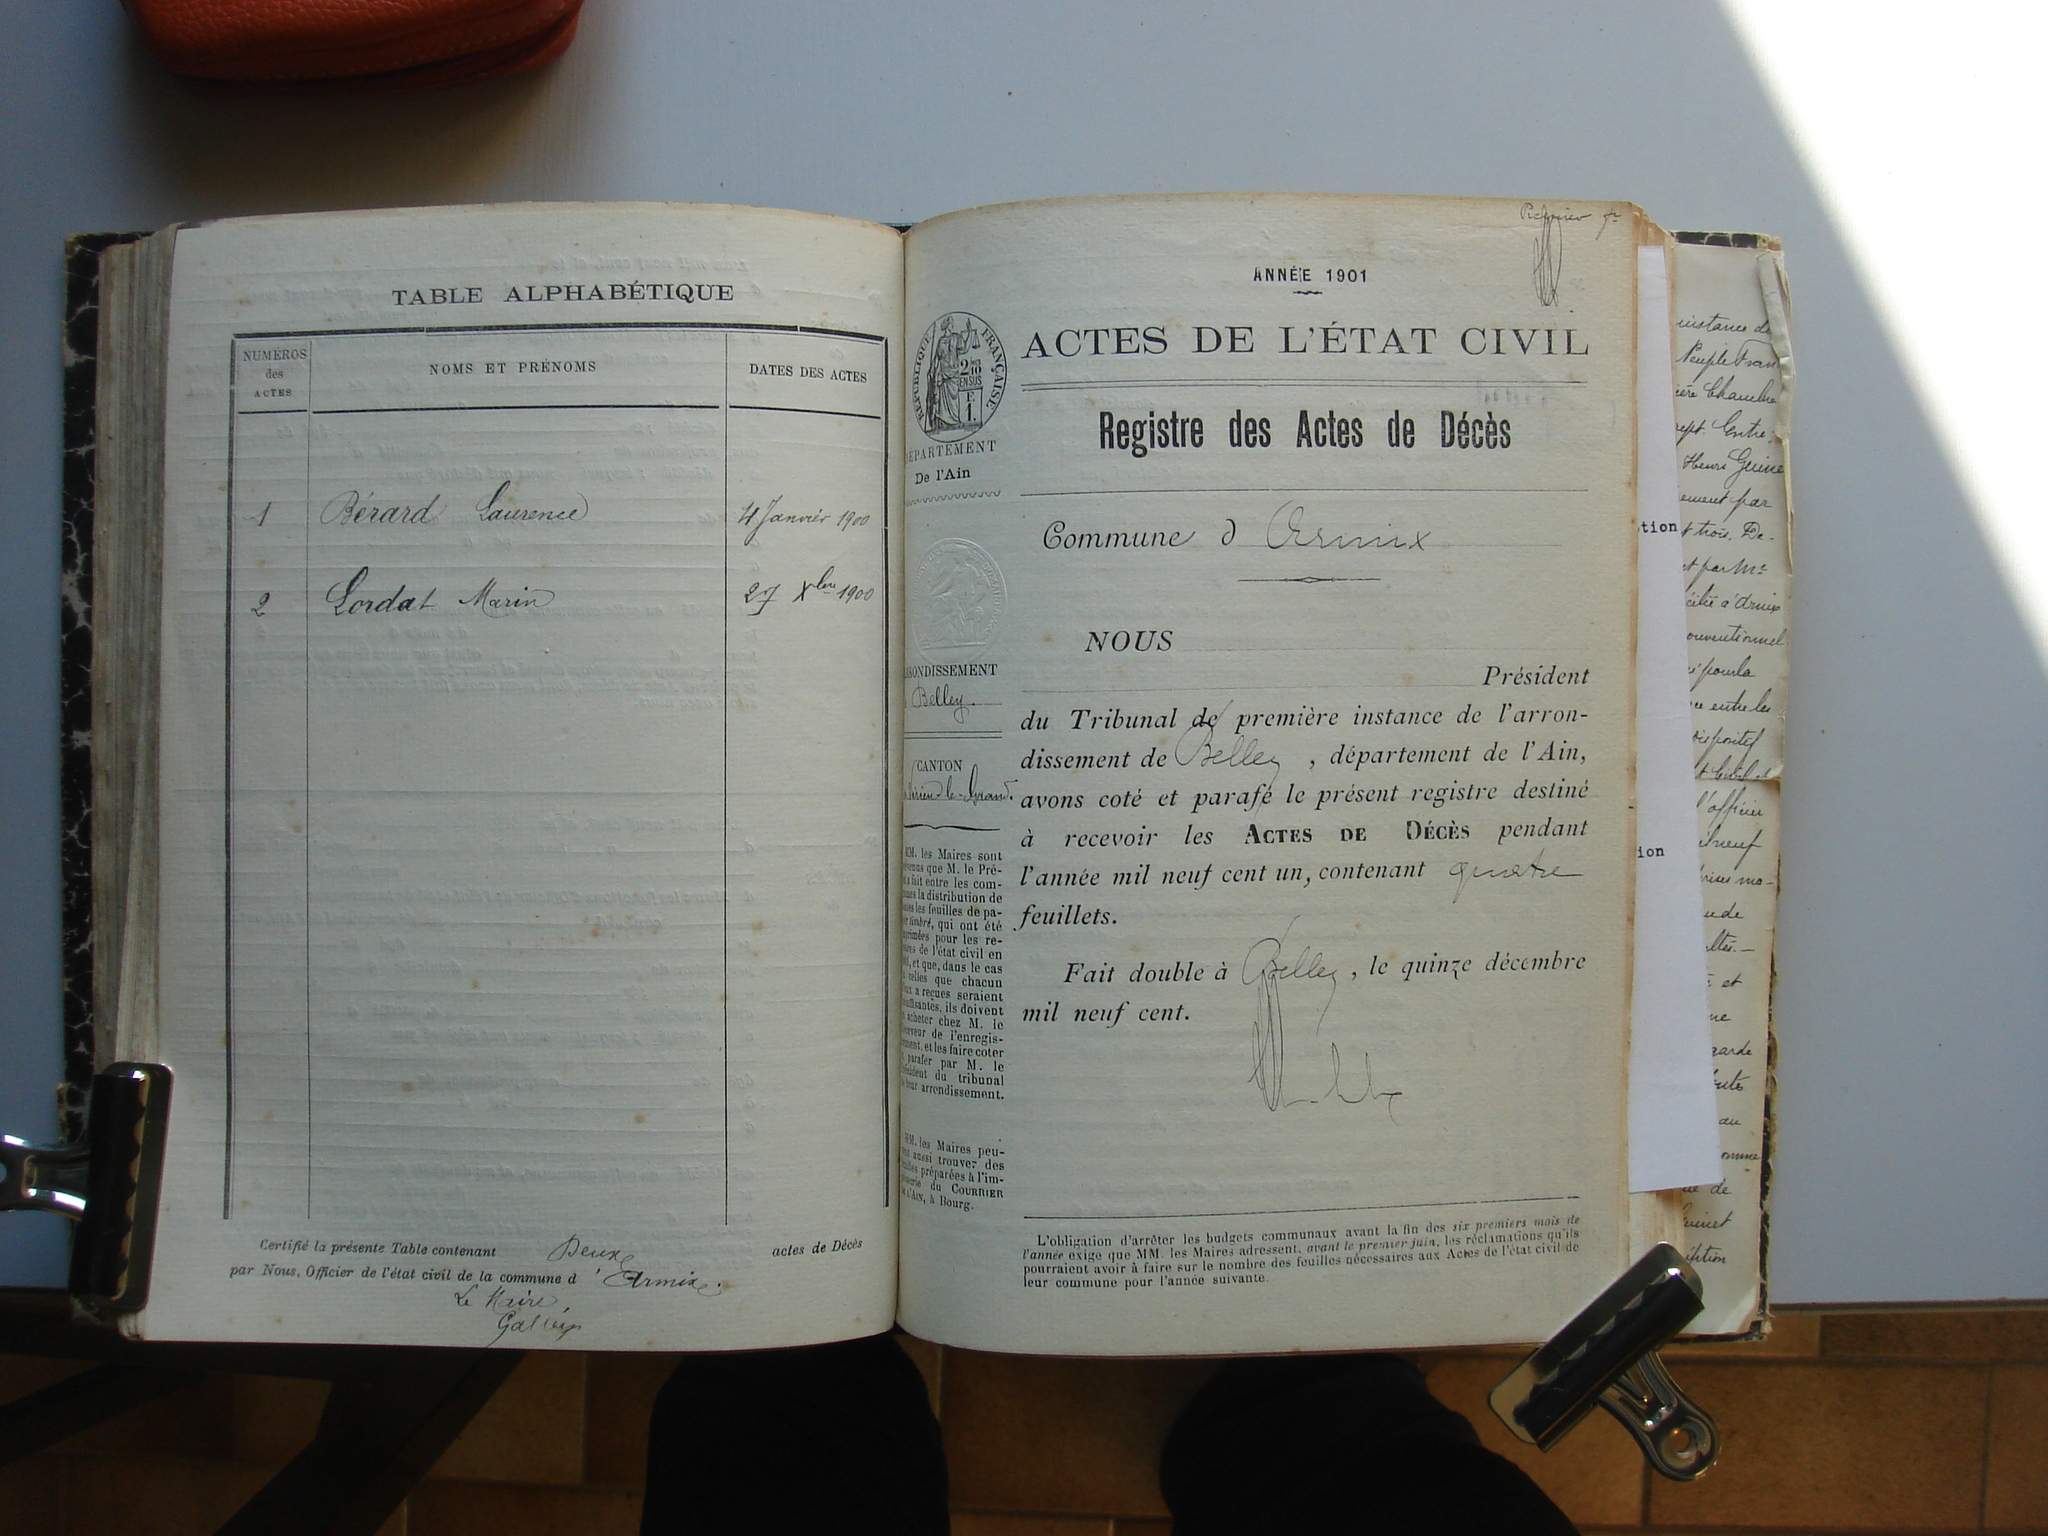 TABLE ALPHABÉTIQUE
NUMÉROS des ACTES
NOMS ET PRÉNOMS
DATES DES ACTES
1 Bérard Laurence 4 Janvier 1900
2 Lordat Marin 27 Xbre 1900
Certifié la présente Table contenant Deux actes de Décès
par Nous, Officier de l'état civil de la commune d'Armix.
Le Maire,
ANNÉE 1901
ACTES DE L'ÉTAT CIVIL
RÉPUBLIQUE FRANÇAISE
DÉPARTEMENT
De l'Ain
Registre des Actes de Décès
Commune d Armix
NOUS
Président
du Tribunal de première instance de l'arron-
dissement de Belley, département de l'Ain,
avons coté et parafé le présent registre destiné
à recevoir les ACTES DE DÉCÈS pendant
l'année mil neuf cent un, contenant quatre
feuillets.
Fait double à Belley, le quinze décembre
mil neuf cent.
L'obligation d'arrêter les budgets communaux avant la fin des six premiers mois de
l'année exige que MM. les Maires adressent, avant le premier juin, les réclamations qu'ils
pourraient avoir à faire sur le nombre des feuilles nécessaires aux Actes de l'état civil de
leur commune pour l'année suivante.
ARRONDISSEMENT
Belley.
CANTON
MM. les Maires sont
que M. le Pré-
a fait entre les com-
la distribution de
les feuilles de pa-
timbré, qui ont été
pour les re-
de l'état civil en
et que, dans le cas
celles que chacun
a reçues seraient
ils doivent
acheter chez M. le
de l'enregis-
et les faire coter
parafer par M. le
du tribunal
arrondissement.
MM. les Maires peu-
aussi trouver des
préparées à l'im-
du COURRIER
de l'AIN, à Bourg.
tion
ion
Peuple Fran
Entre
Henri
par
trois. De-
et par Me
à Armix
pour la
entre les
l'officier
et
garde
au
de